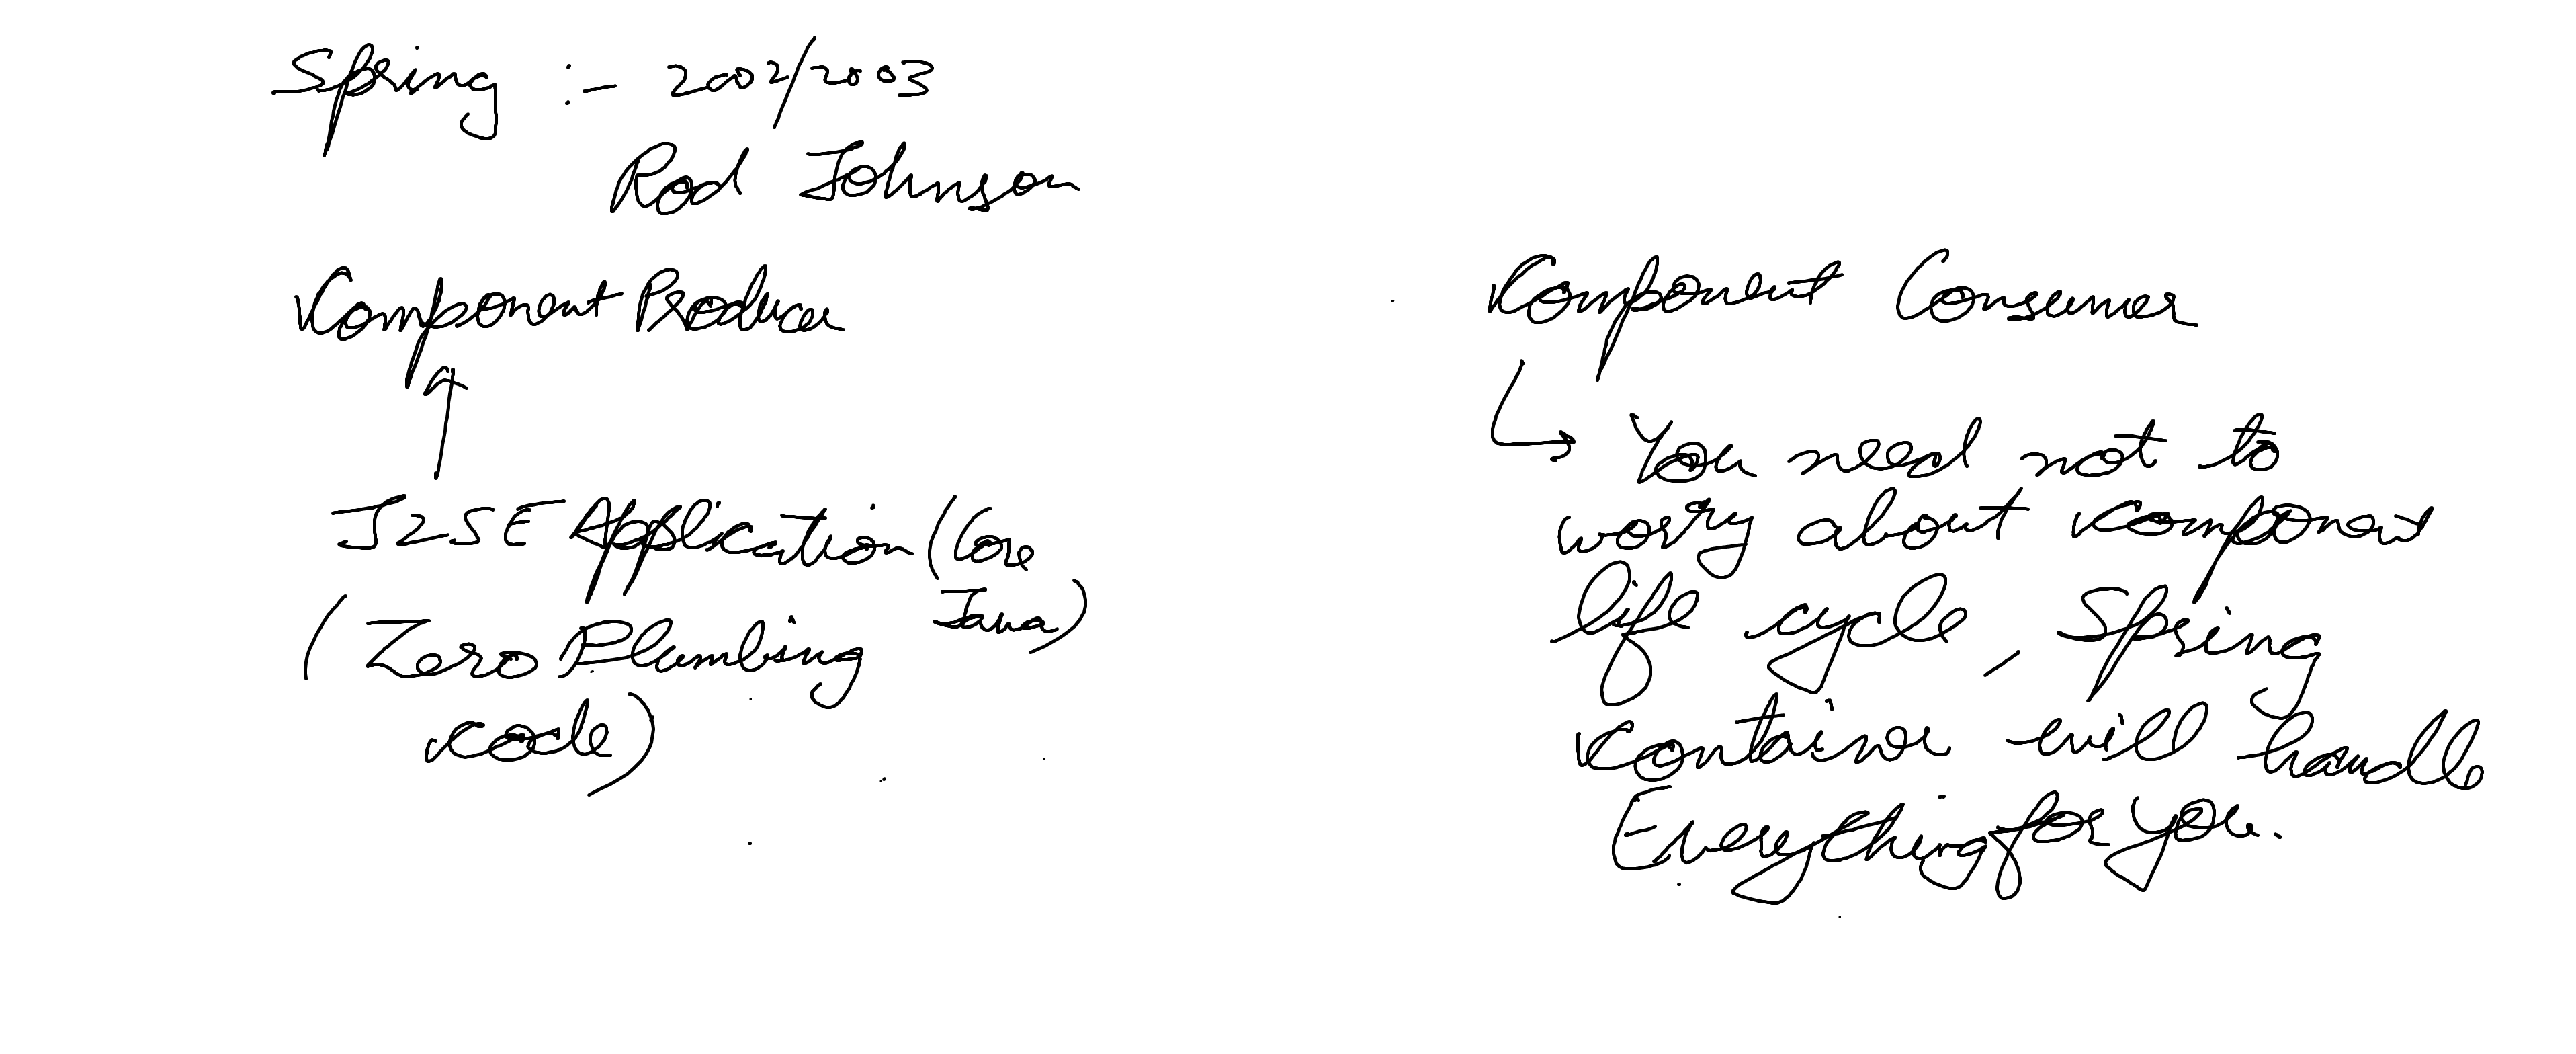 Spring :- 2002/2003
Rod Johnson
Component Producer
J2SE Application (Core
Java)
(Zero Plumbing
code)
Component Consumer
You need not to
worry about component
life cycle, Spring
container will handle
Everything for you.